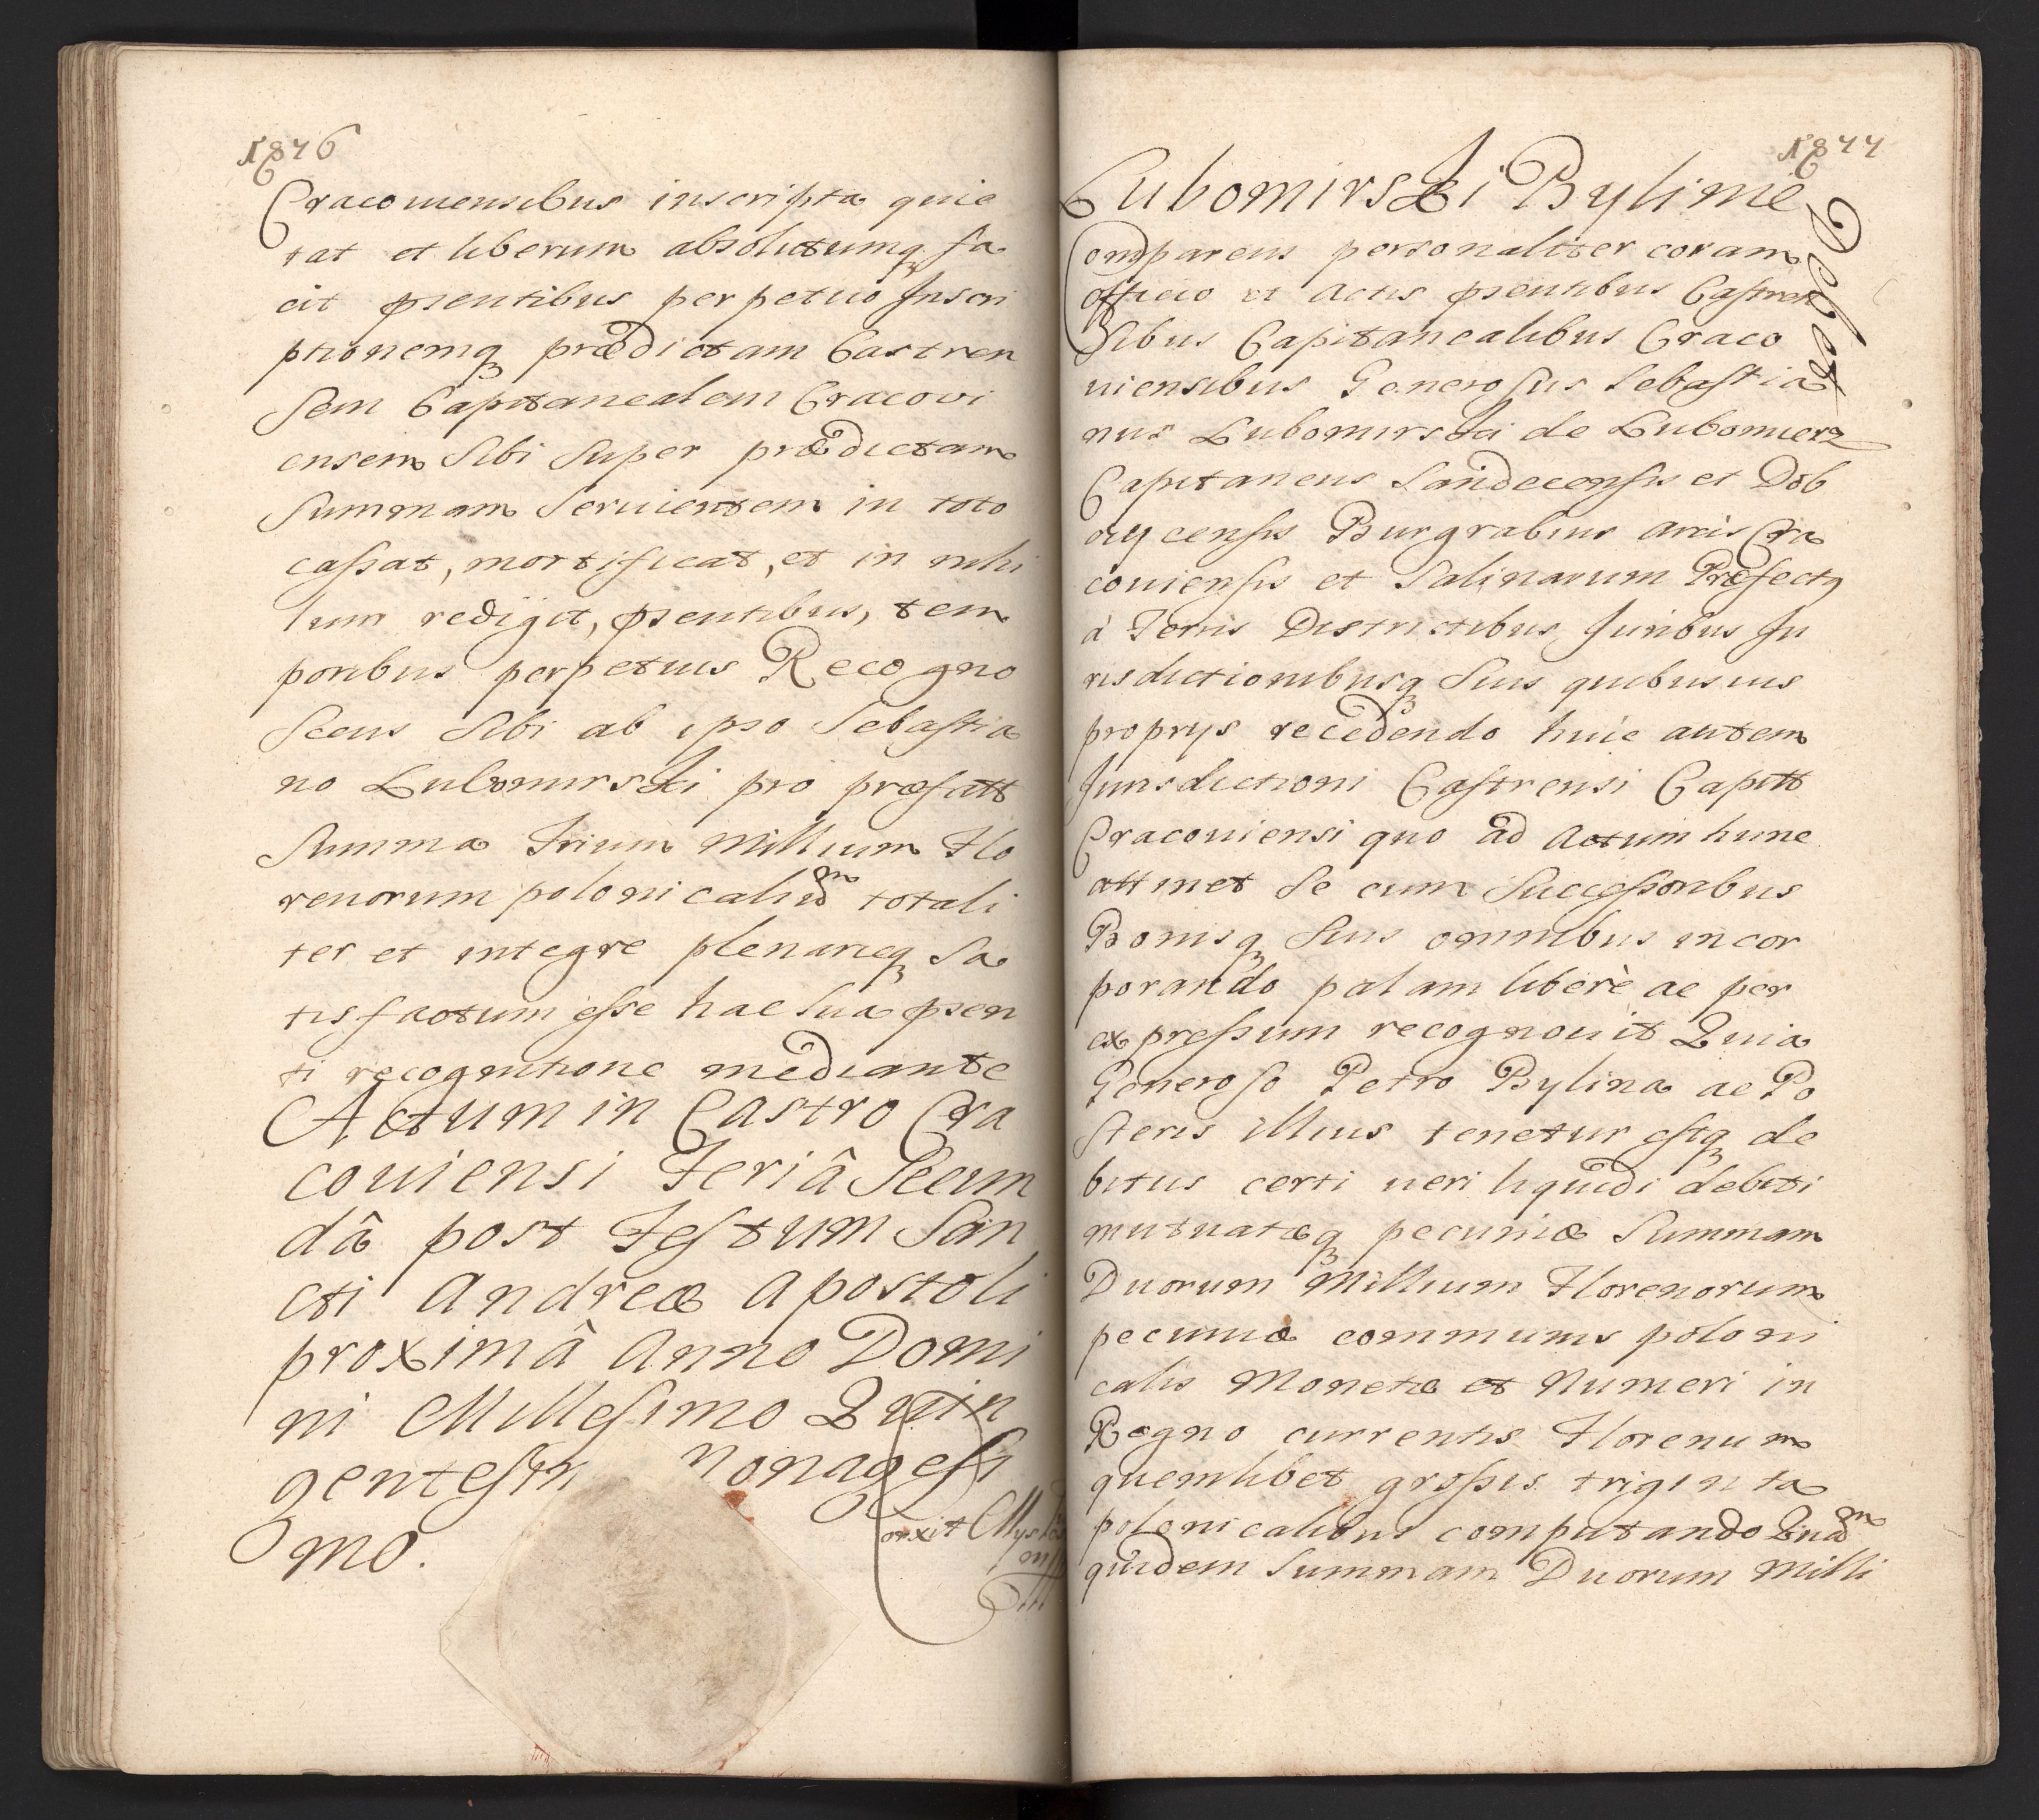 1876
Cracouiensibus inscripta quie
tat et liberum absolutumq fa
cit pſentibus perpetuo Inscri
ptionemq prædictam Castren
sem Capitanealem Cracovi
ensem sibi super prædictam
summam seruientem in toto
caſsat, mortificat, et in nihi
lum redigit, pſentibus, tem
poribus perpetuis Recogno
scens sibi ab ipso Sebaſtia
no Lubomirski pro præfatt
summa Trium Millium Flo
renorum polonicaliu᷃ totali
ter et integre plenarieq sa
tisfactum eſse hac sua pſen
ti recognitione mediante
Actum in Castro Cra
couiensi Feriâ Secun
dâ post Feſtum San
cti Andreæ Apostoli
proximâ Anno Domi
ni Milleſimo Quin
genteſim Nonageſi
mo.
1877
Lubomirski Bylinie
Debet
Comparens personaliter coram
officio et Actis pſentibus Caſtren
ſibus Capitanealibus Craco
uiensibus Generoſus Sebaſtia
nus Lubomirski de Lubomierz
Capitaneus Sandecenſis et Dob
czycenſis Burgrabius arcis Cra
couienſis et Salinarum Præfectq
à Terris Districtibus Iuribus Iu
risdictionibusq suis quibusuis
proprys recedendo huic autem
Iurisdictioni Caſtrensi Capitt
Cracouiensi quo ad Actum hunc
attinet se cum Succeſsoribus
Bonisq suis omnibus incor
porando palam liberè ac per
expreſsum recognouit Quia
Generoſo Petro Bylina ac Po
ſteris illius tenetur eſtq de
bitus certi ueri liquidi debiti
mutuatæq pecuniæ Summam
Duorum Millium Florenorum
pecuniæ communis poloni
calis Monetæ et Numeri in
Regno currentis Florenum
quemlibet groſsis triginta
polonicalibus computando Qua᷃
quidem Summam Duorum Milli